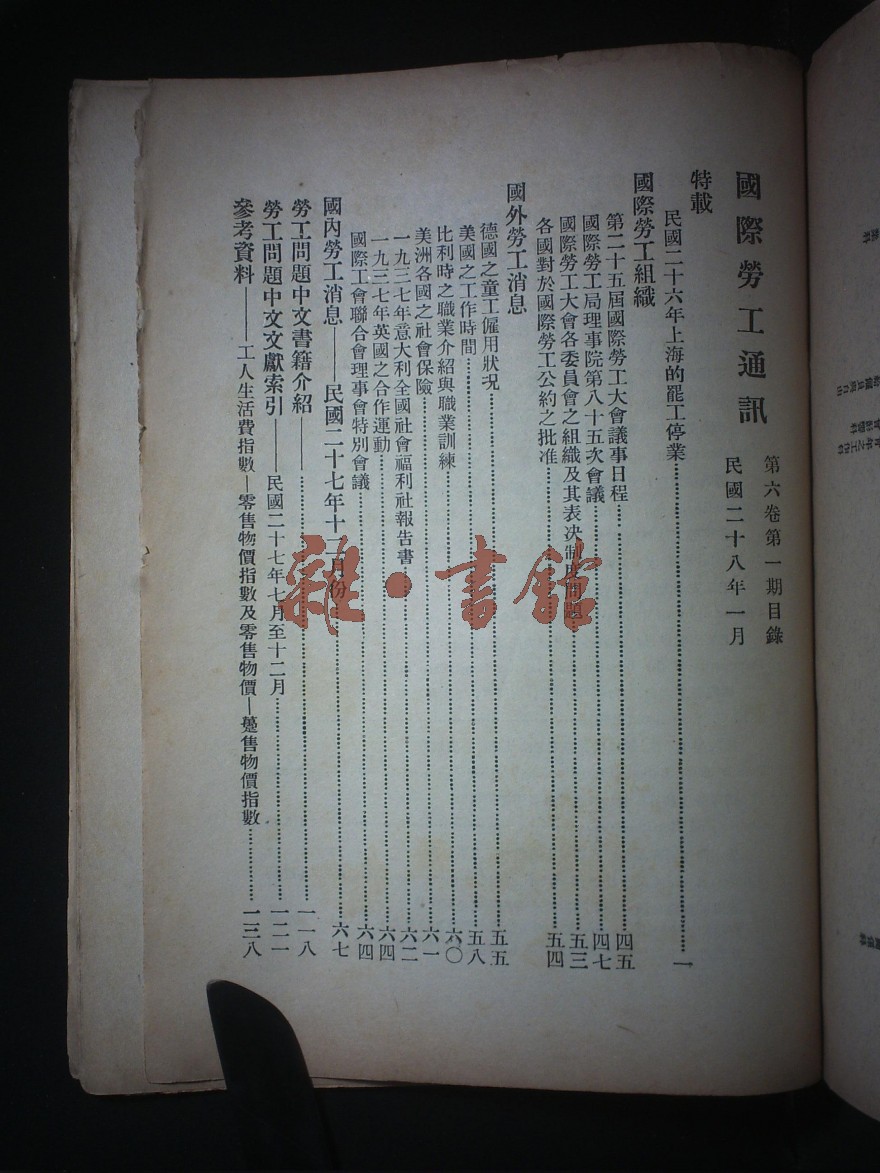 國際勞工通訊
第六卷第一期目錄
民國二十八年一月
特載
民國二十六年上海的罷工停業……一
國際勞工組織
第二十五屆國際勞工大會議事日程……四五
國際勞工局理事院第八十五次會議……四七
國際勞工大會各委員會之組織及其表決制度問題……五三
各國對於國際勞工公約之批准……五四
國外勞工消息
德國之童工僱用狀況……五五
美國之工作時間……五八
比利時之職業介紹與職業訓練……六〇
美洲各國之社會保險……六一
一九三七年意大利全國社會福利社報告書……六二
一九三七年英國之合作運動……六四
國際工會聯合會理事會特別會議……六四
國內勞工消息——民國二十七年十二月份……六七
勞工問題中文書籍介紹——……一一八
勞工問題中文文獻索引——民國二十七年七月至十二月……一二一
參考資料——工人生活費指數—零售物價指數及零售物價—躉售物價指數……一三八
雜·書館